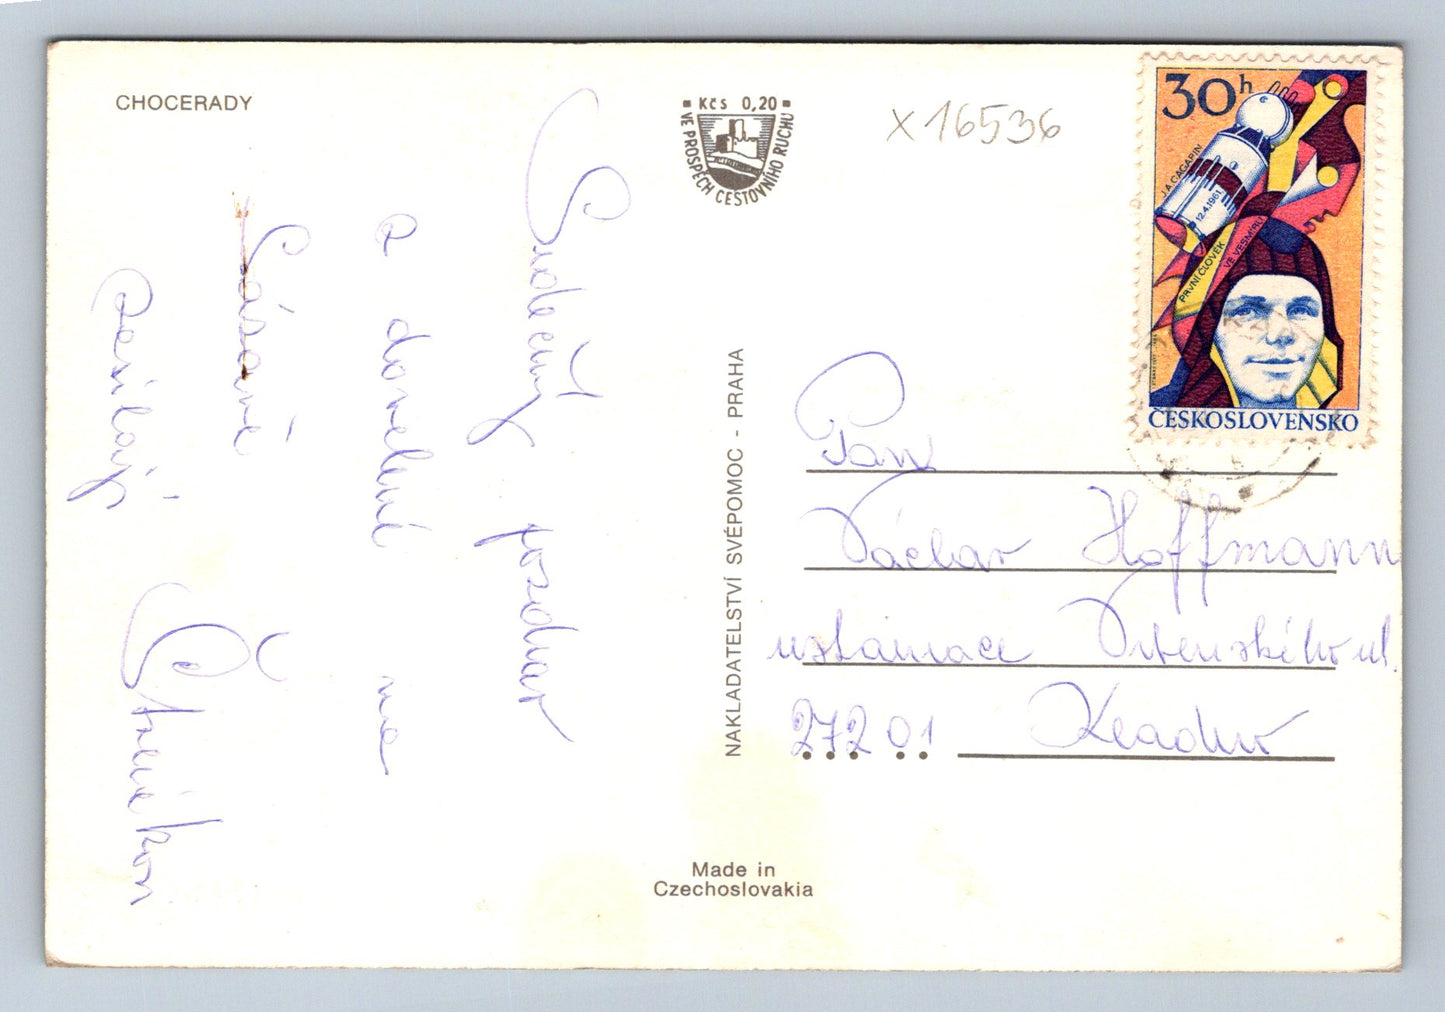 CHOCERADY
Kčs 0,20
VE PROSPĚCH CESTOVNÍHO RUCHU
X16536
30h
J.A.GAGARIN
12.4.1961
PRVNÍ ČLOVĚK
VE VESMÍRU
ČESKOSLOVENSKO
Srdečný pozdrav
a dovolené na
Sázavě
posílají
NAKLADATELSTVÍ SVÉPOMOC - PRAHA
Pan
Václav Hoffmann
ul.
272 01 Kladno
Made in
Czechoslovakia